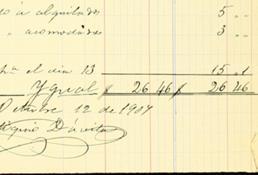 o á alquilados 5 ..
" acomodados 3 ..
el dia 13 15 . 1
Ygual $ 26 46 $ 26 46
Octubre 12 de 1907
Dávila